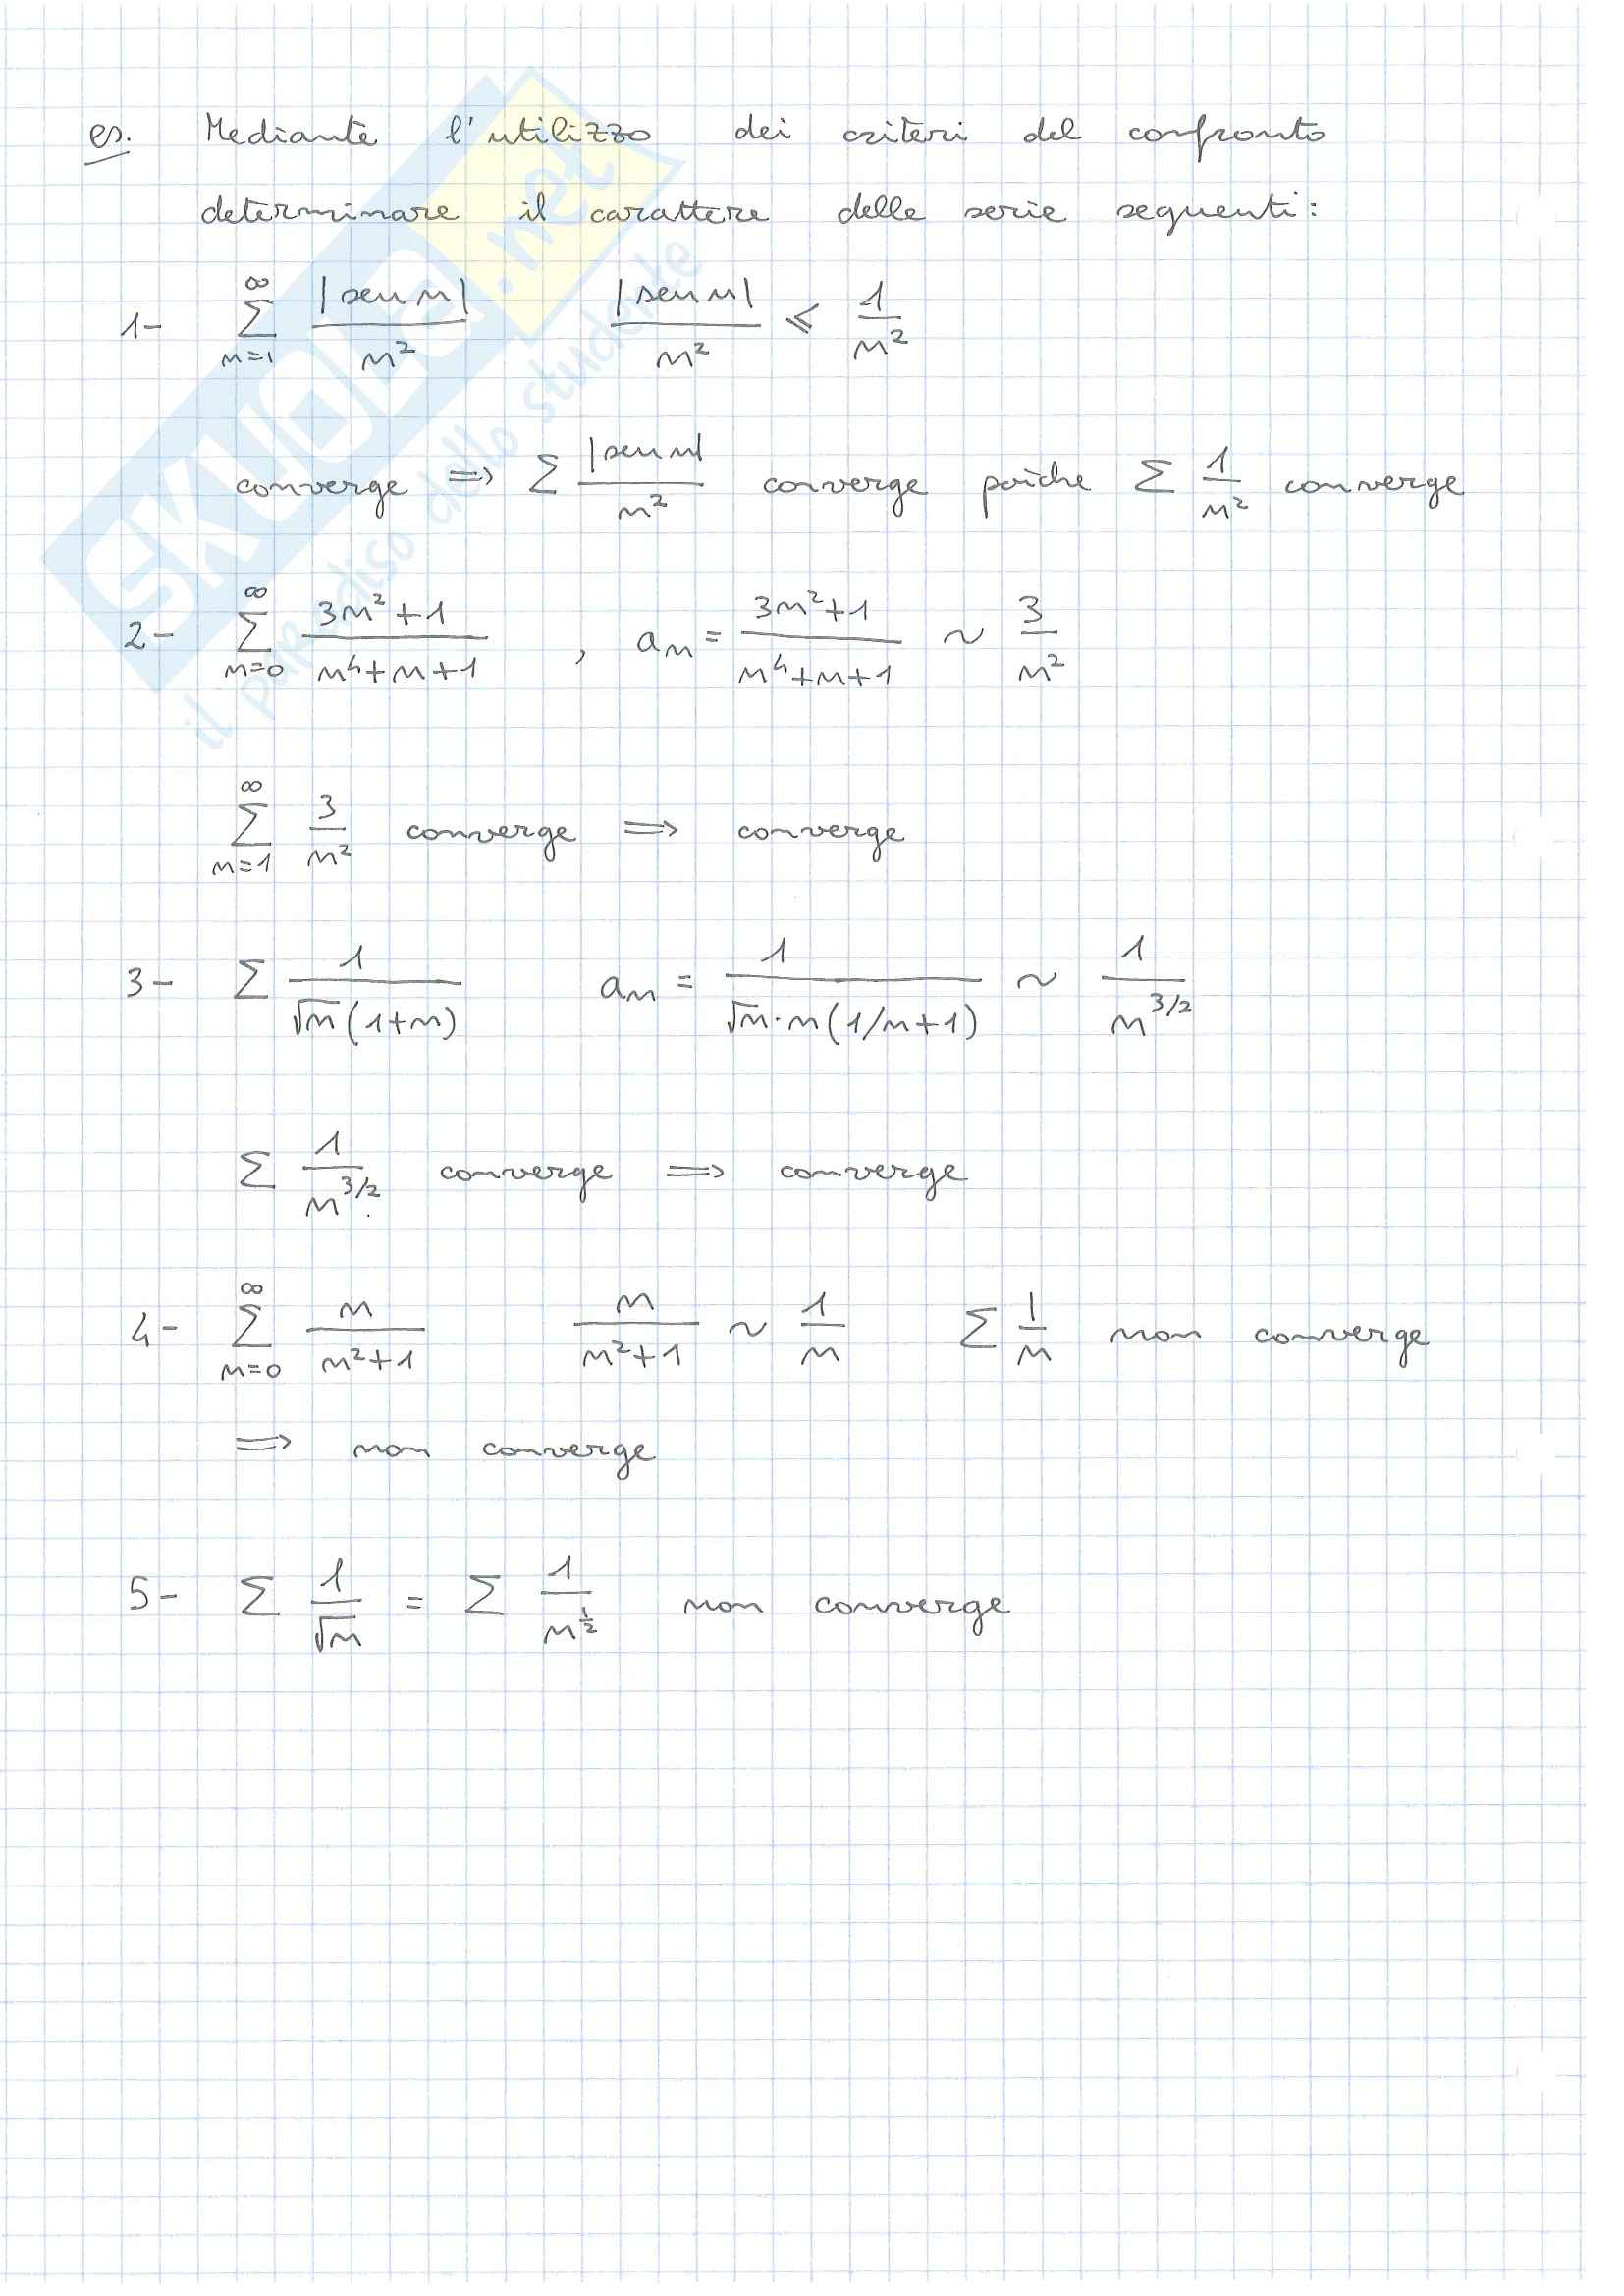 es. Mediante l'utilizzo dei criteri del confronto
determinare il carattere delle serie seguenti:
1- ∞∑n=1 |sen n|/n² |sen n|/n² ≤ 1/n²
converge => ∑ |sen n|/n² converge poichè ∑ 1/n² converge
2- ∞∑n=0 3n²+1/n⁴+n+1 , an = 3n²+1/n⁴+n+1 ~ 3/n²
∞∑n=1 3/n² converge => converge
3- ∑ 1/√n(1+n) an = 1/√n·n(1/n+1) ~ 1/n^3/2
∑ 1/n^3/2 converge => converge
4- ∞∑n=0 n/n²+1 n/n²+1 ~ 1/n ∑ 1/n non converge
=> non converge
5- ∑ 1/√n = ∑ 1/n^1/2 non converge
SKUOLA.net
il paradiso dello studente